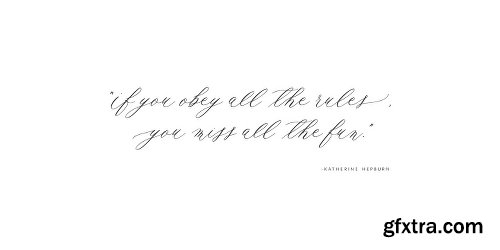 "if you obey all the rules,
you miss all the fun."
-KATHERINE HEPBURN
gfxtra.com